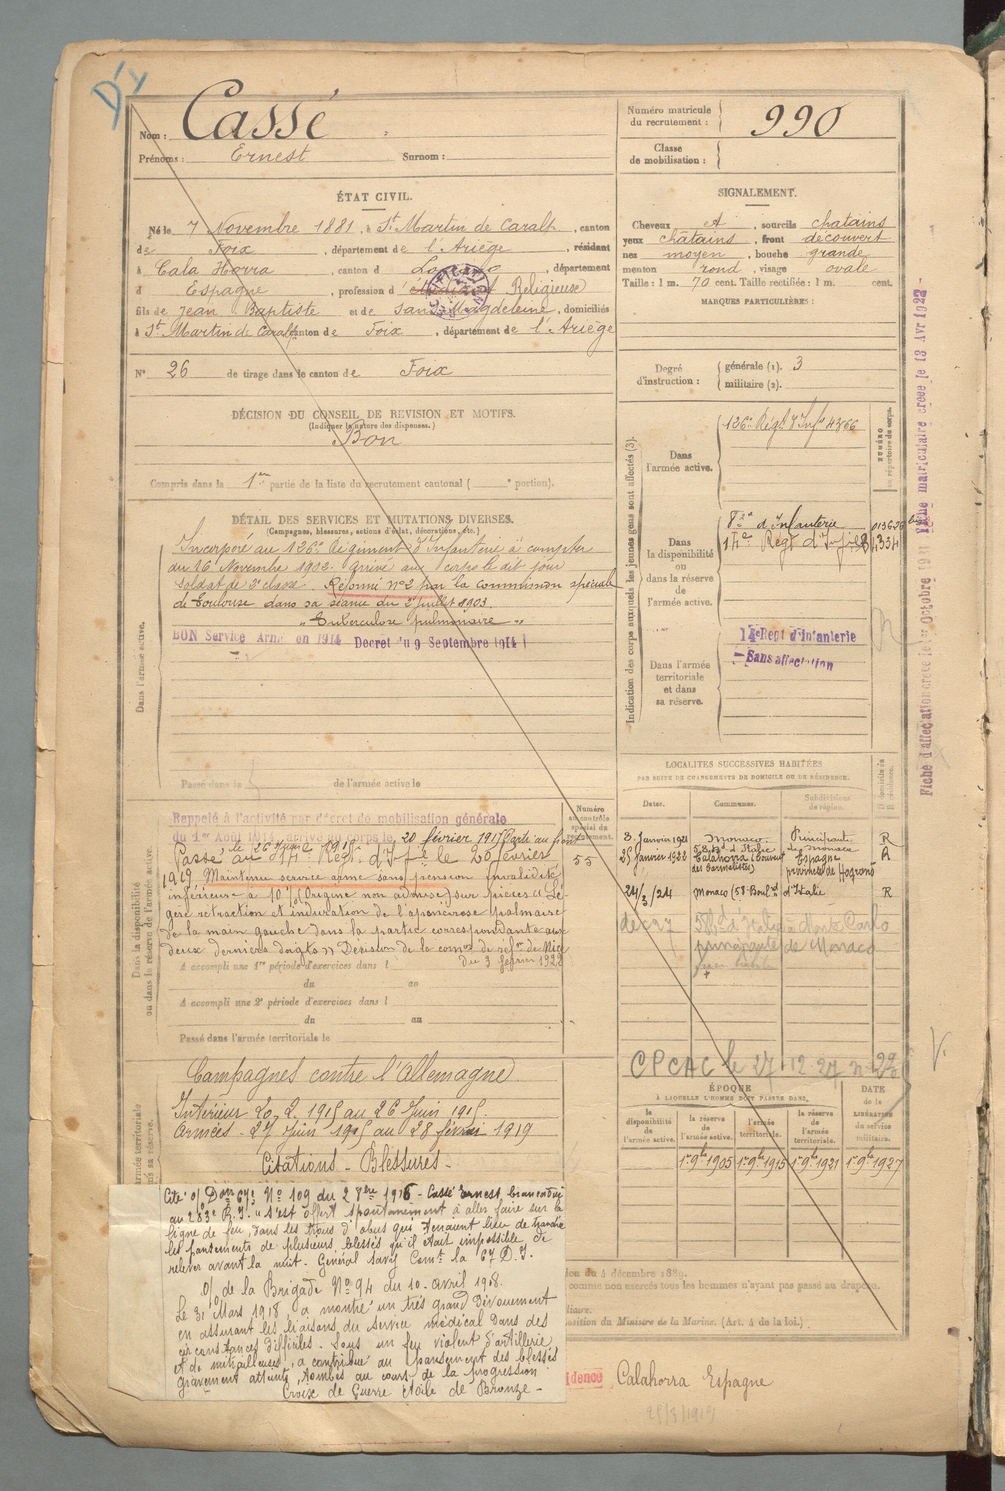 Nom : Cassé
Prénoms : Ernest Surnom :
ÉTAT CIVIL.
Né le 7 Novembre 1881, à St Martin de Caralp, canton
de Foix, département de l'Ariège, résidant
à Cala Horra, canton d, département
d Espagne, profession d Religieuse
fils de Jean Baptiste et de Sans Magdeleine, domiciliés
à St Martin de Caralp canton de Foix, département de l'Ariège
N° 26 de tirage dans le canton de Foix
DÉCISION DU CONSEIL DE REVISION ET MOTIFS.
(Indiquer la nature des dispenses.)
Bon
Compris dans la 1re partie de la liste du recrutement cantonal ( e portion).
DÉTAIL DES SERVICES ET MUTATIONS DIVERSES.
(Campagnes, blessures, actions d'éclat, décorations, etc.)
Dans l'armée active.
Incorporé au 126e Régiment d'Infanterie à compter
du 16 Novembre 1902. Arrivé au corps le dit jour
soldat de 2e classe. Réformé n°2 par la commission spéciale
de Toulouse dans sa séance du 2 juillet 1903.
"Tuberculose pulmonaire"
BON Service Armé en 1914 Decret du 9 Septembre 1914
Passé dans la de l'armée active le
Dans la disponibilité
ou dans la réserve de l'armée active.
Rappelé à l'activité par décret de mobilisation générale
du 1er Août 1914, arrivé au corps le 20 février 1915 Parti au front
le 26 Juin 1915.
Passé au 14e Regt d'Infie le 20 février
1919 Maintenu service armé sans pension invalidité
inférieure à 10% (Origine non) sur pièces "Lé-
gère rétraction et induration de l'aponévrose palmaire
de la main gauche dans la partie correspondante aux
deux derniers doigts" Décision de la comon de réfme de Nice
du 3 février 1922
A accompli une 1re période d'exercices dans l
du au
A accompli une 2e période d'exercices dans l
du au
Passé dans l'armée territoriale le
Numéro
au contrôle
spécial du
recrutement.
55
Campagnes contre l'Allemagne
Intérieur 20.2.1915 au 26 Juin 1915.
Armées - 27 Juin 1915 au 28 février 1919
Citations - Blessures -
Cité o/ Don 67e No 109 du 28bre 1916 - Cassé Ernest, brancardier
au 283e R.I. "S'est offert spontanément à aller faire sur la
ligne de feu, dans les trous d'obus qui tenaient lieu de tranchée
les pansements de plusieurs blessés qu'il était impossible de
relever avant la nuit. Général Savy Comt la 67 D.I.
o/ de la Brigade No 94 du 10 avril 1918.
Le 31 Mars 1918 a montré un très grand dévouement
en assurant les liaisons du service médical dans des
circonstances difficiles. Sous un feu violent d'artillerie
et de mitrailleuses, a contribué au pansement des blessés
gravement atteints, tombés au cours de la progression
Croix de Guerre Etoile de Bronze -
Numéro matricule
du recrutement : 990
Classe
de mobilisation :
SIGNALEMENT.
Cheveux et, sourcils chatains
yeux châtains, front découvert
nez moyen, bouche grande
menton rond, visage ovale
Taille : 1 m. 70 cent. Taille rectifiée : 1 m. cent.
MARQUES PARTICULIÈRES :
Degré
d'instruction :
générale (1). 3
militaire (2).
Indication des corps auxquels les jeunes gens sont affectés (3).
NUMÉRO
au répertoire du corps.
Dans
l'armée active.
126e Régt d'Infie 4366
Dans
la disponibilité
ou
dans la réserve
de
l'armée active.
d'Infanterie
14e Regt d'Infie
Dans l'armée
territoriale
et dans
sa réserve.
14e Regt d'infanterie
Sans affectation
LOCALITÉS SUCCESSIVES HABITÉES
PAR SUITE DE CHANGEMENTS DE DOMICILE OU DE RÉSIDENCE.
Dates. Communes. Subdivisions de région. D domicile ou R résidence.
3 Janvier 1921 Monaco 58 Bd d'Italie Principauté de Monaco R
25 Janvier 1922 Calahorra (Couvent des Carmélites) Espagne province de Logrono R
24/3/24 Monaco (58 Boulrd d'Italie R
dec 27 58 Bd d'Italie à Monte Carlo
principauté de Monaco
CPCAC le 27-12-27 n°
ÉPOQUE
À LAQUELLE L'HOMME DOIT PASSER DANS,
la disponibilité de l'armée active.
la réserve de l'armée active.
l'armée territoriale.
la réserve de l'armée territoriale.
DATE de la LIBÉRATION du service militaire.
1er 9bre 1905 1er 9bre 1915 1er 9bre 1921 1er 9bre 1927
du 4 décembre 1889.
comme non exercés tous les hommes n'ayant pas passé au drapeau.
disposition du Ministre de la Marine. (Art. 4 de la loi.)
idence Calahorra Espagne
25/3/1919
Fiche matriculaire créée le 13 Avr 1922